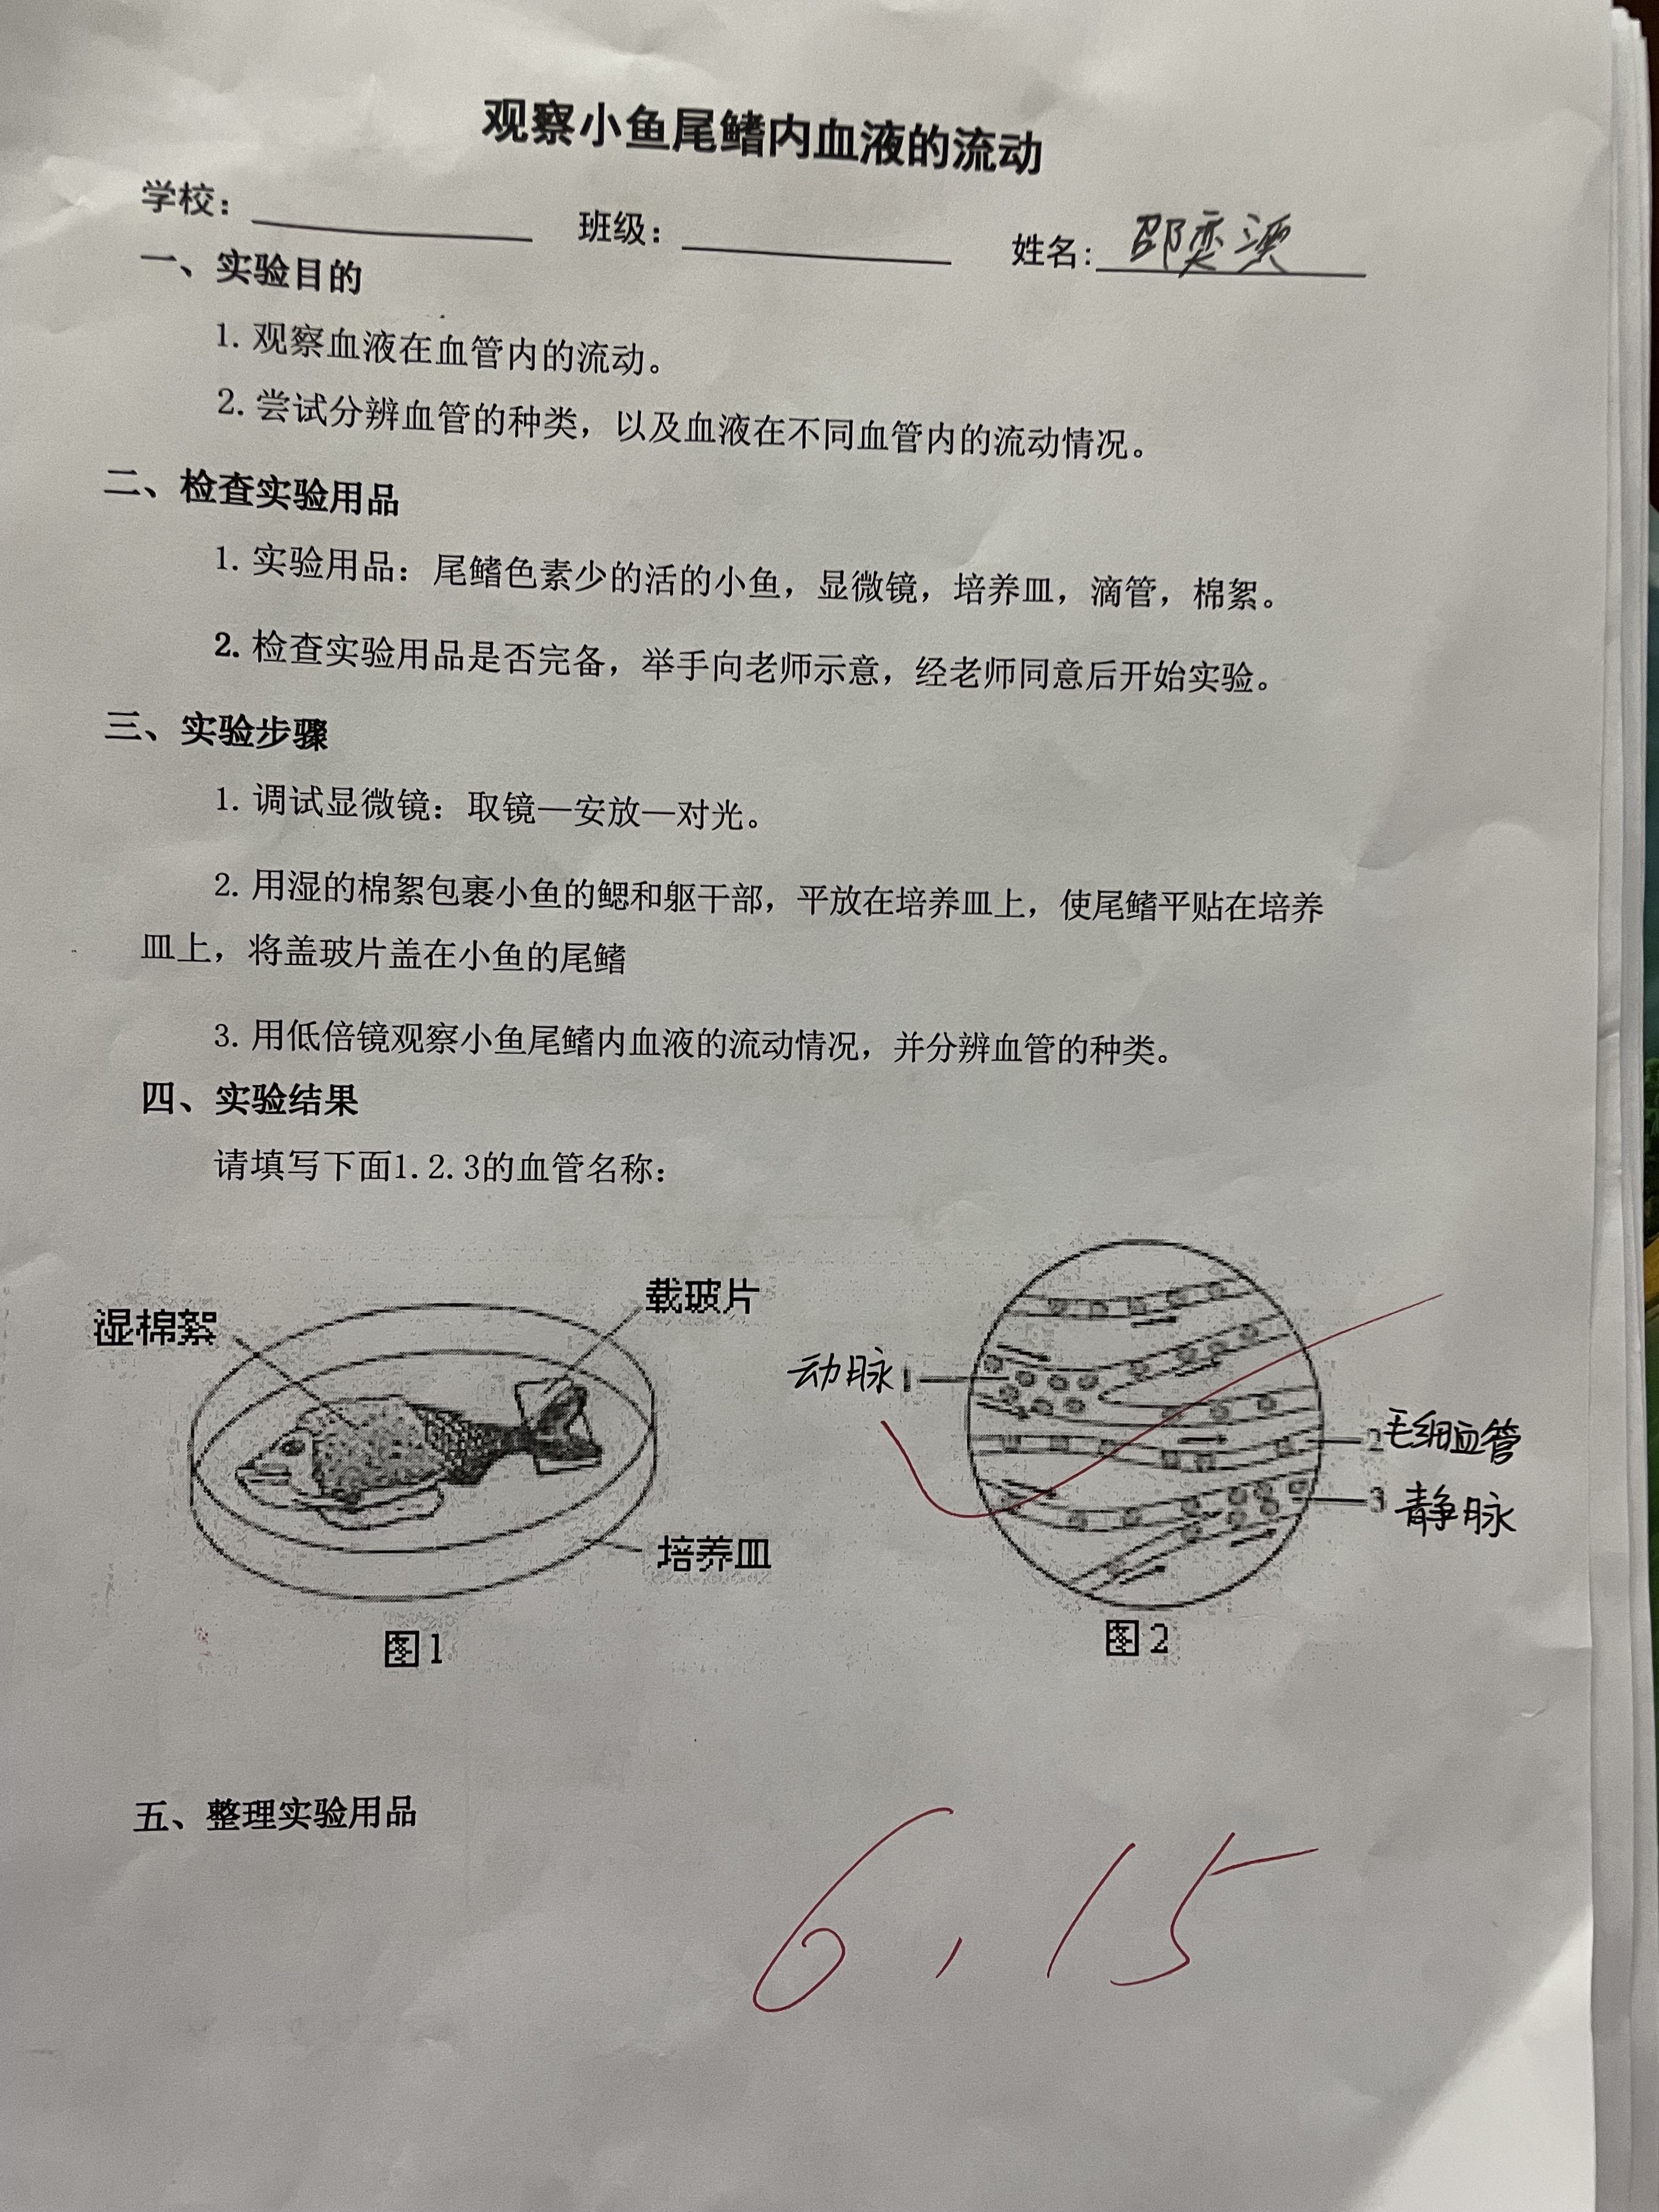 观察小鱼尾鳍内血液的流动
学校： 班级： 姓名：邵奕
一、实验目的
1. 观察血液在血管内的流动。
2. 尝试分辨血管的种类，以及血液在不同血管内的流动情况。
二、检查实验用品
1. 实验用品：尾鳍色素少的活的小鱼，显微镜，培养皿，滴管，棉絮。
2. 检查实验用品是否完备，举手向老师示意，经老师同意后开始实验。
三、实验步骤
1. 调试显微镜：取镜—安放—对光。
2. 用湿的棉絮包裹小鱼的鳃和躯干部，平放在培养皿上，使尾鳍平贴在培养
皿上，将盖玻片盖在小鱼的尾鳍
3. 用低倍镜观察小鱼尾鳍内血液的流动情况，并分辨血管的种类。
四、实验结果
请填写下面1.2.3的血管名称：
湿棉絮
载玻片
培养皿
图1
动脉 1
2 毛细血管
3 静脉
图2
五、整理实验用品
6.15